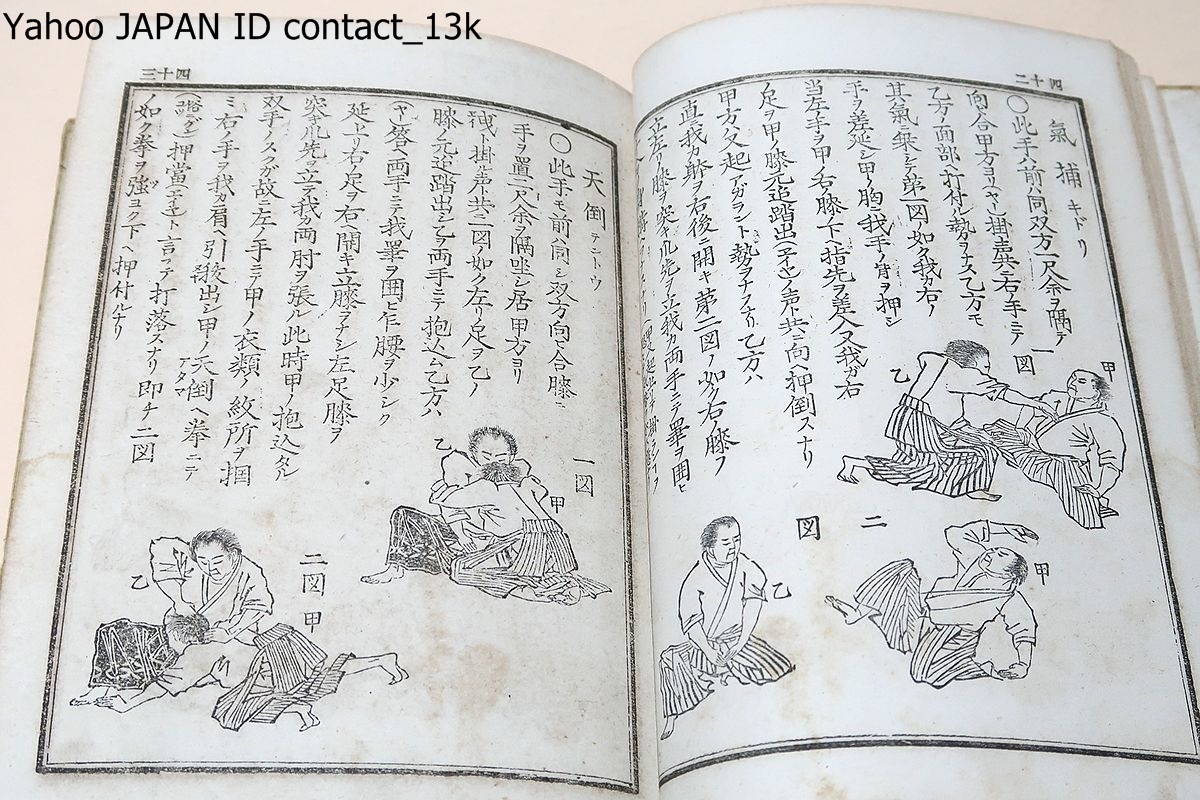 Yahoo JAPAN ID contact_13k
四十二
氣捕 キドリ
○此手ハ前ハ同双方一尺余ヲ隔テ
向合甲方ヨリ(ヤ)ト掛声共ニ右手ニテ
乙方ノ面部ヘ打付ル勢ヲナス乙方モ
其氣ニ乘シ第一図ノ如ク我カ右ノ
手ヲ差延シ甲ノ胸ニ我手ノ甲ヲ押シ
当左手ヲ甲ノ右膝ノ下ヘ指先ヲ差入又我カ右
ノ足ヲ甲ノ膝元迄踏出(エヤ)ノ声ト共ニ向ヘ押倒スナリ
甲方又起アガラント勢ヲナスナリ乙方ハ
直我カ躰ヲ右後ニ開キ第二図ノ如ク右膝ヲ
立左リ膝ヲ突キ爪先ヲ立我カ両手ニテ睪ヲ囲ヒ
一図
甲
乙
二図
甲
乙
四十三
天倒 テントウ
○此手モ前ハ同シ双方向ヒ合膝ニ
手ヲ置一尺余ヲ隔坐シ居甲方ヨリ
ト掛ル声共ニ一図ノ如ク左リ足ヲ乙ノ
膝ノ元迄踏出シ乙ヲ両手ニテ抱込ム乙方ハ
(ヤ)ト答ヘ両手ニテ我睪ヲ囲ヒ乍腰ヲ少シク
延上リ右足ヲ右ヘ開キ立膝ヲナシ左足膝ヲ
突キ爪先ヲ立テ我カ両肘ヲ張ル此時甲ノ抱込タル
双手ノスクガ故ニ左ノ手ニテ甲ノ衣類ノ紋所ヲ掴
ミ右手ヲ我カ肩ヘ引發出シ甲ノ天倒ヘ拳ニテ
アタマ
押當(エイヤ)ト言ツテ打落スナリ即チ二図
如ク拳ヲ強ヨク下ヘ押付ルナリ
一図
甲
乙
二図
甲
乙